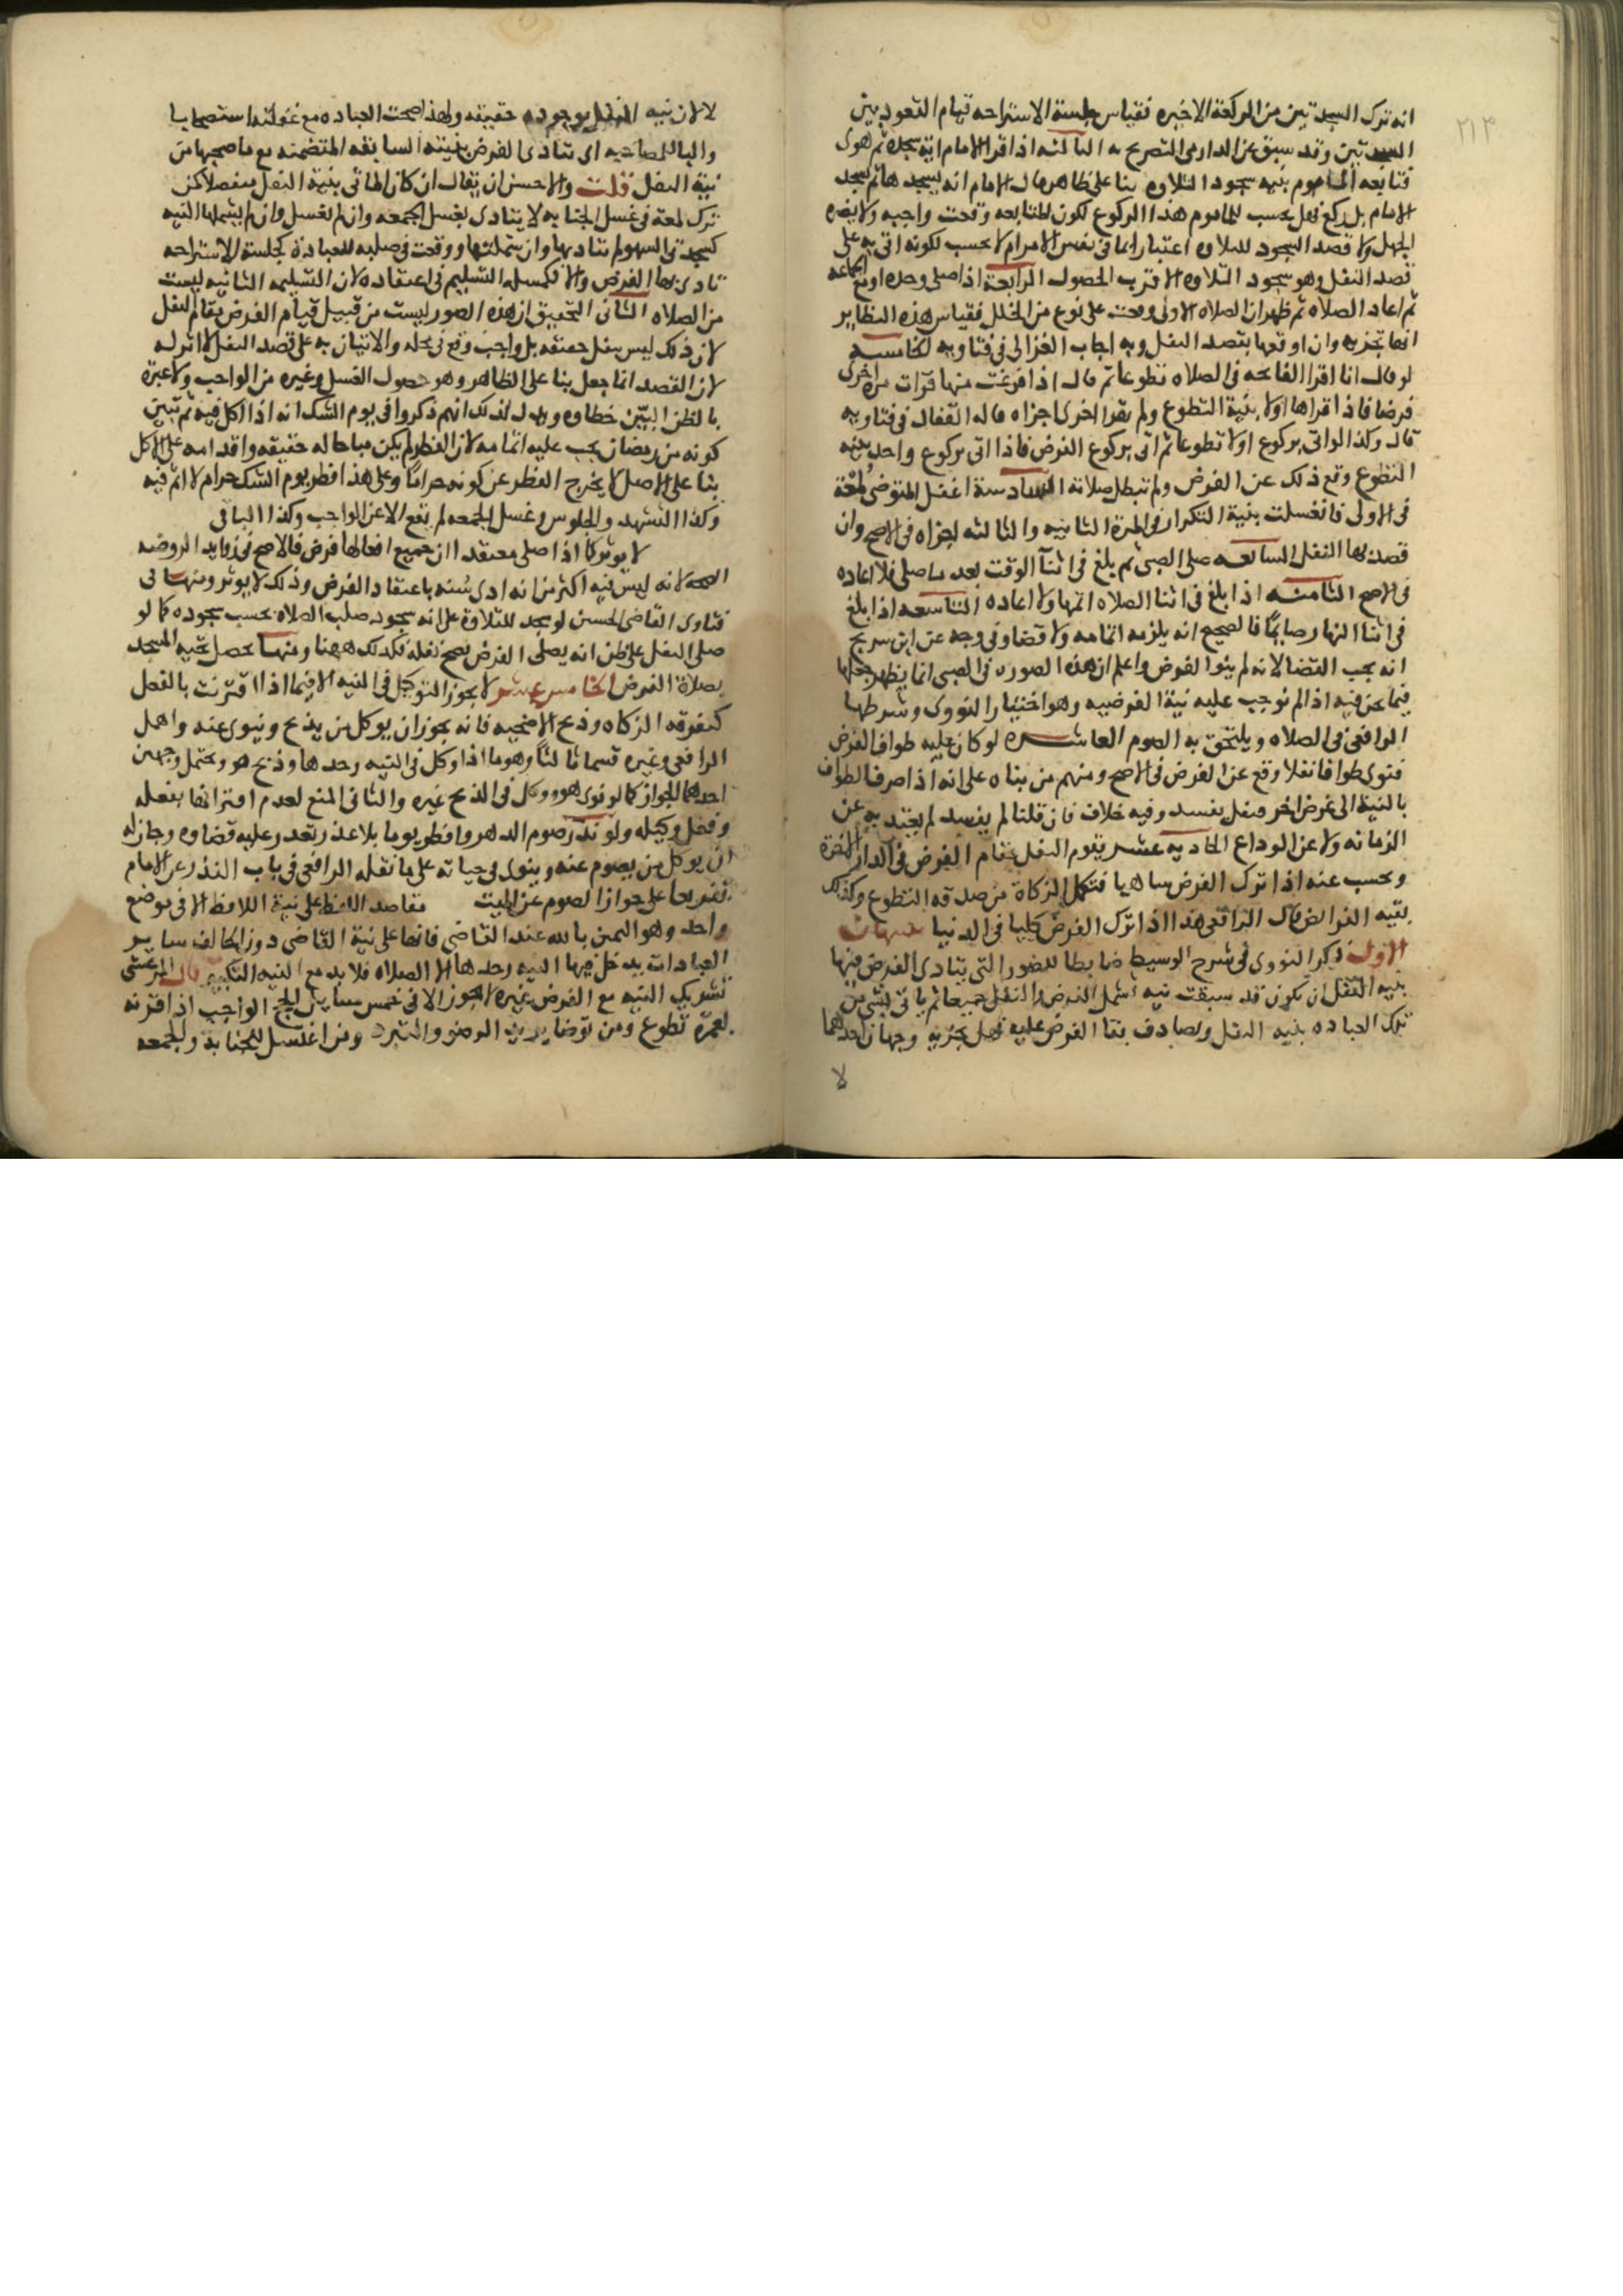 ٢١٣
انه ترك السجدتين من الركعة الاخيره فقياس جلسة الاستراحه قيام القعود بين
السجدتين وقد سبق عن الدارمى التصريح به الثالثه اذا قرا الامام اية سجده ثم هوى
فتابعه الماموم بنيه سجود التلاوه بنا على ظاهر حال الامام انه يسجد هاثم لم يسجد
الامام بل ركع فهل يحسب للماموم هذا الركوع لكون المتابعه وقعت واجبه ولا يضره
الجهل ولا قصد السجود للتلاوه اعتبارا بما فى نفس الامر ام لا يحسب لكونه اتى به على
قصد النفل وهو سجود التلاوه الاقرب الحصول الرابعة اذا صلى وحده او مع جماعه
ثم اعاد الصلاه ثم ظهر ان الصلاه الاولى وقعت على نوع من الخلل فقياس هذه النظاير
انها تجزيه وان اوقعها بقصد النفل وبه اجاب الغزالى فى فتاويه الخامسه
لو قال انا اقرا الفاتحه فى الصلاه تطوعا ثم قال اذا فرغت منها قرات مرة اخرى
فرضا فاذا قراها اولا بنية التطوع ولم يقرا اخرى اجزاه قاله القفال فى فتاويه
قال وكذا لو اتى بركوع اولا تطوعا ثم اتى بركوع الفرض فاذا اتى بركوع واحد بنيه
التطوع وقع ذلك عن الفرض ولم تبطل صلاته السادسة اغفل المتوضى لمعة
فى الاولى فانغسلت بنية التكرار فى المرة الثانيه والثالثه اجزاه فى الاصح وان
قصد بها النفل السابعه صلى الصبى ثم بلغ فى اثنآ الوقت بعد ما صلى فلا اعاده
فى الاصح الثامنه اذا بلغ فى اثنا الصلاه اتمها ولا اعاده التاسعه اذا بلغ
فى اثنا النهار صايمًا فالصحيح انه يلزمه اتمامه ولا قضا وفى وجه عن ابن سريج
انه يجب القضا لانه لم ينو الفرض واعلم ان هذه الصوره فى الصبى انما يظهر جعلها
فيما نحن فيه اذا لم نوجب عليه نية الفرضيه وهو اختيار النووى وشرطها
الرافعى فى الصلاه ويلتحق به الصوم العاشره لو كان عليه طواف الفرض
فنوى طوافا نفلا وقع عن الفرض فى الاصح ومنهم من بناه على انه اذا صرف الطواف
بالنية الى غرض اخر فهل يفسد وفيه خلاف فان قلنا لم يفسد لم يعتد به عن
الزمانه ولا عن الوداع الحاديه عشر يقوم النفل مقام الفرض فى الدار الاخرة
ويحسب عنه اذا ترك الفرض ساهيا فتكمل الزكاة من صدقه التطوع وكذلك
بقيه الفرايض قال الرافعى هذا اذا ترك الفرض كليا فى الدنيا تنبيهات
الاول ذكر النووى فى شرح الوسيط ضابطا للصور التى يتادى الفرض فيها
بنيه النفل ان تكون قد سبقت نيه تشمل الفرض والنفل جميعا ثم ياتى بشى من
تلك العباده بنيه النفل ويصادف بقا الفرض عليه فهل تجزيه وجهان احدهما
لا
لا لان نيه النفل بوجوده حقيقه ولهذا صحت العباده مع غفلته استصحابا
والبا للمصاحبه اى تتادى الفرض بنيته السابقه المتضمنه مع ما صحبها من
نية النفل قلت والاحسن ان يقال ان كان الماتى بنية النفل منفصلا كمن
ترك لمعة فى غسل الجنابه لا يتادى بغسل الجمعه وان لم يغسل وان لم يشملها النيه
كسجدتى السهو لم تتاد بها وان شملتها ووقعت فى صلبه للعبادة كجلسة الاستراحه
تادى بها الفرض والا فكمسله التسليم فى اعتقاده لان التسليمه الثانيه ليست
من الصلاه الثانى التحقيق ان هذه الصور ليست من قبيل قيام الفرض مقام النفل
لان ذلك ليس بنفل حقيقه بل واجب وقع فى محله والاتيان به على قصد النفل لا اثر له
لان القصد انما جعل بنا على الظاهر وهو حصول الغسل وغيره من الواجب ولا عبرة
بالظن البيّن خطاوه ويدل لذلك انهم ذكروا فى يوم الشك انه اذا اكل فيه ثم تبين
كونه من رمضان يجب عليه اتمامه لان الفطر لم يكن مباحا له حقيقه واقدامه على الاكل
بنا على الاصل لا يخرج الفطر عن كونه حراما وعلى هذا افطر يوم الشك حرام لا اثم فيه
وكذا التشهد والجلوس وغسل الجمعه لم يقع الا عن الواجب وكذا الباقى
لا يوثر كما اذا صلى معتقدا ان جميع افعالها فرض فالاصح فى زوايد الروضه
الصحه لانه ليس فيه اكثر من انه ادى سُنه باعتقاد الفرض وذلك لا يوثر ومنها فى
فتاوى القاضى الحسين لو سجد للتلاوة على انه سجود صلب الصلاه يحسب سجوده كما لو
صلى النفل على ظن انه يصلى الفرض يصح نفله فكذلك ههنا ومنها تحصل تحيه المسجد
بصلاة الفرض الخامس عشر لا يجوز التوكيل فى النيه الا فيما اذا اقترنت بالفعل
كتفرقه الزكاه وذبح الاضحيه فانه يجوز ان يوكل من يذبح وينوى عنه واهمل
الرافعى وغيره قسما ثالثا وهو ما اذا وكل فى النيه وحدها وذبح هو ويحتمل وجهين
احدهما الجواز كما لو نوى هو ووكل فى الذبح غيره والثانى المنع لعدم اقترانها بفعله
وفعل وكيله ولو نذر صوم الدهر وافطر يوما بلا عذر تعذر عليه قضاوه وجاز له
ان يوكل من يصوم عنه وينوى فى حياته على ما نقله الرافعى فى باب النذر عن الامام
تفريعا على جواز الصوم عن الميت مقاصد اللفظ على نية اللافظ الا فى موضع
واحد وهو اليمين بالله عند القاضى فانها على نية القاضى دون الحالف ساير
العبادات يدخل فيها النيه وحدها الا الصلاه فلا بد مع النيه التكبير قال المرعشى
تشريك النيه مع الفرض غيره لا يجوز الا فى خمس مسايل الحج الواجب اذا قرنه
بعمرة تطوع ومن توضا يريد الوضو والتبرد ومن اغتسل للجنابة والجمعه